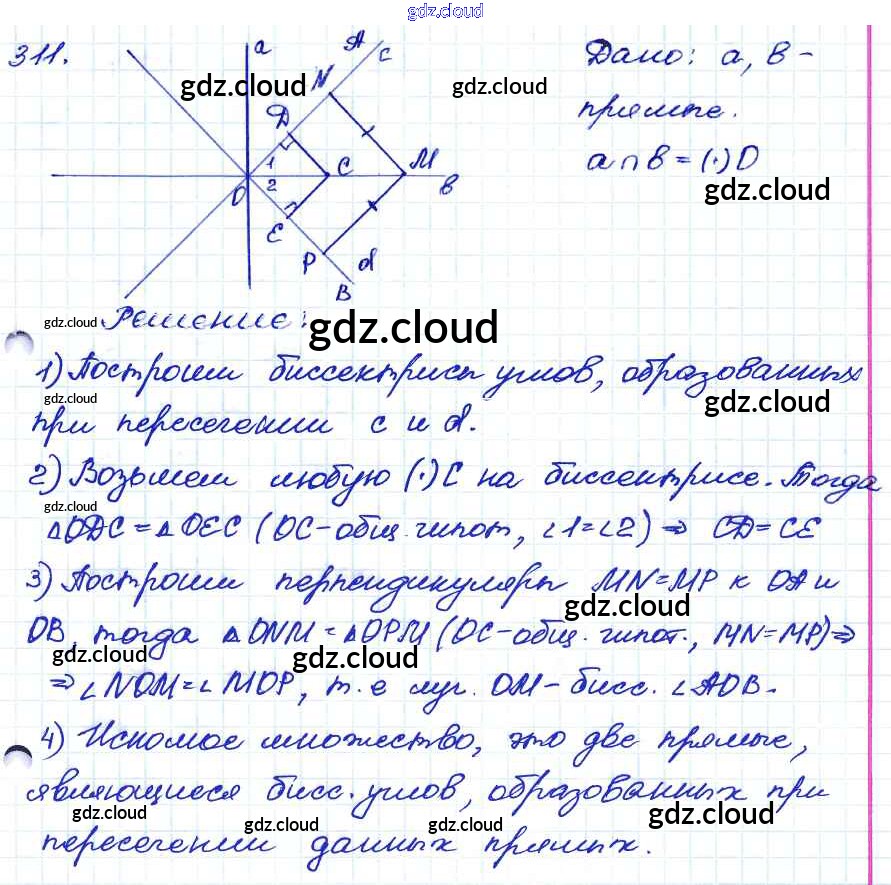 gdz.cloud
311.
a
A
c
N
D
1
C
M
O
2
в
E
P
d
B
Дано: a, в -
прямые.
a ∩ в = (·) O
gdz.cloud
gdz.cloud
gdz.cloud
gdz.cloud
gdz.cloud
gdz.cloud Решение: gdz.cloud
1) Построим биссектрисы углов, образованных
gdz.cloud gdz.cloud
при пересечении c и d.
2) Возьмем любую (·) C на биссектрисе. Тогда
gdz.cloud
△ODC = △OEC (OC - общ. гипот, ∠1=∠2) ⇒ CD = CE
3) Построим перпендикуляры MN=MP к OA и
gdz.cloud
OB, тогда △ONM = △OPM (OC - общ. гипот., MN=MP) ⇒
gdz.cloud gdz.cloud
⇒ ∠NOM = ∠MOP, т. е луч. OM - бисс. ∠AOB.
4) Искомое множество, это две прямые,
являющиеся бисс. углов, образованных при
gdz.cloud gdz.cloud gdz.cloud gdz.cloud
пересечении данных прямых.